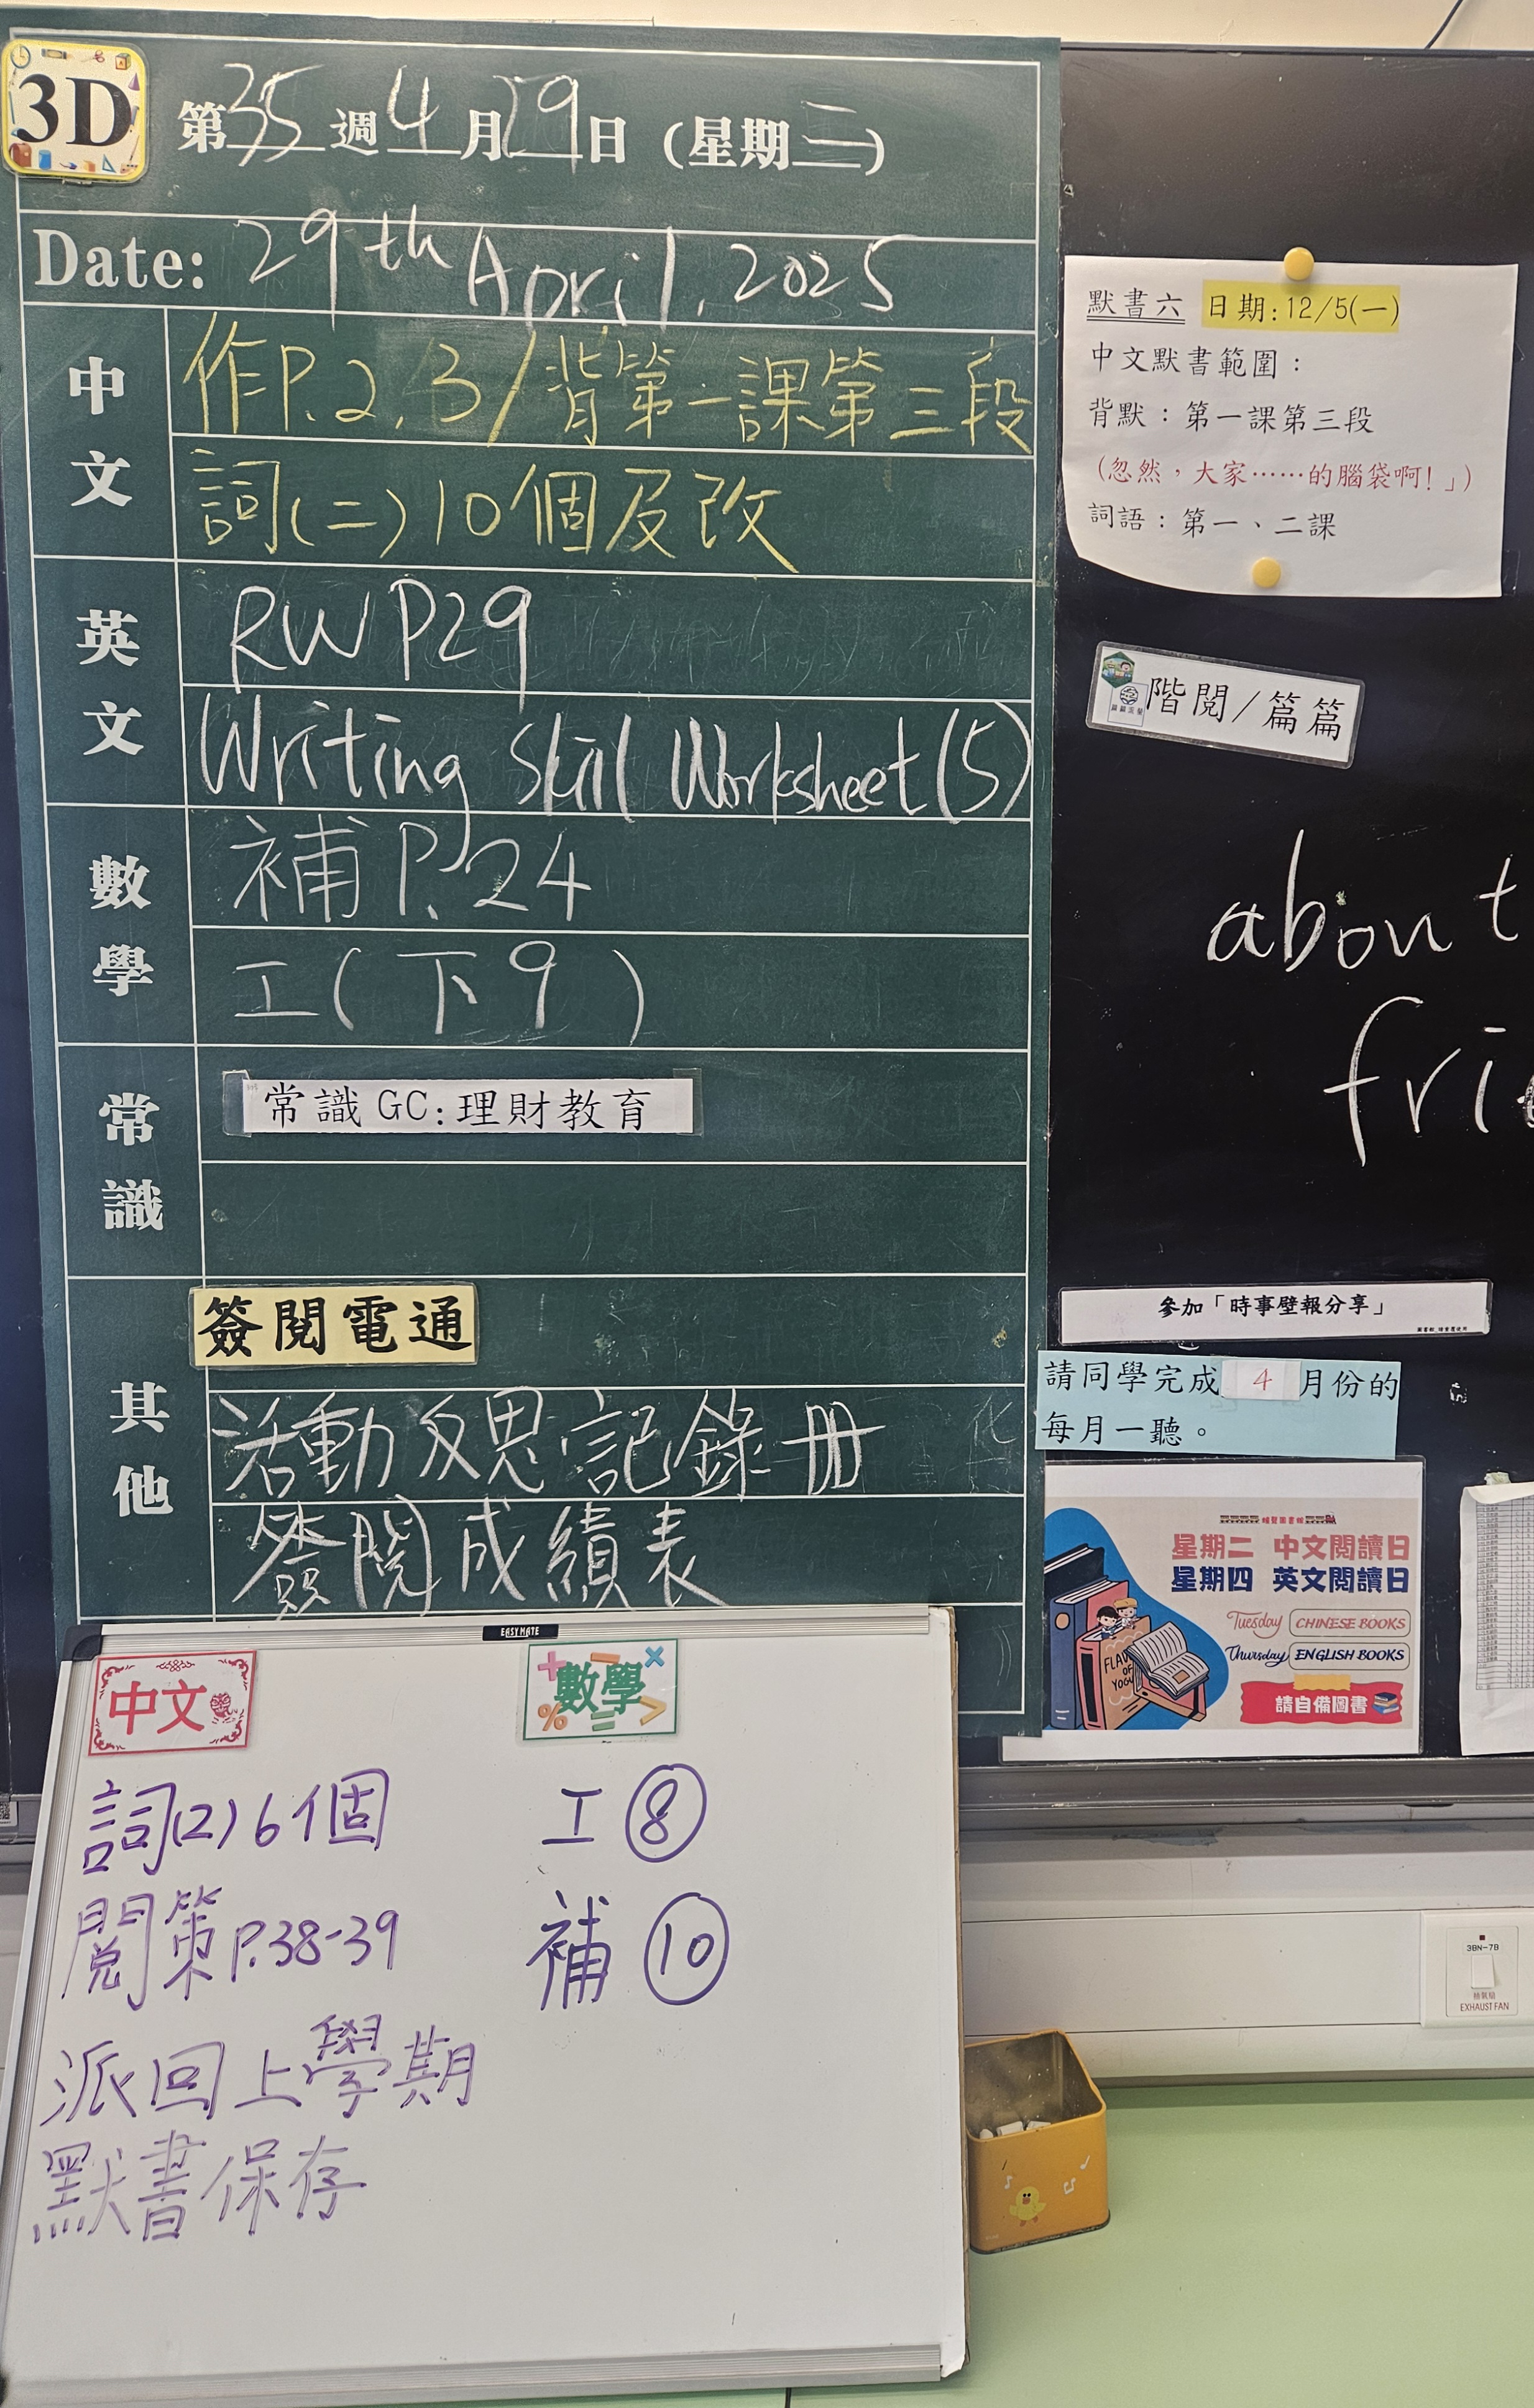 3D
第35週4月29日(星期二)
Date: 29th April, 2025
中文
作P.2,3/背第一課第三段
詞(二)10個及改
英文
RW P29
Writing Skill Worksheet(5)
數學
補P.24
工(下9)
常識
常識 GC:理財教育
其他
簽閱電通
活動反思記錄冊
簽閱成績表
默書六 日期:12/5(一)
中文默書範圍：
背默：第一課第三段
（忽然，大家……的腦袋啊!」）
詞語：第一、二課
階閱/篇篇
about
參加「時事壁報分享」
請同學完成 4 月份的
每月一聽。
星期二 中文閱讀日
星期四 英文閱讀日
Tuesday CHINESE BOOKS
Thursday ENGLISH BOOKS
請自備圖書
EASYMATE
中文
詞(2)6個
閱策P.38-39
派回上學期
默書保存
數學
工⑧
補⑩
3BN-7B
抽氣扇
EXHAUST FAN